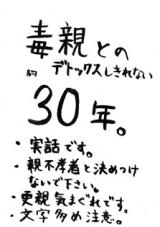 毒親との
デトックスしきれない
約
30年。
・実話です。
・親不孝者と決めつけ
ないで下さい。
・更新気まぐれです。
・文字多め注意。